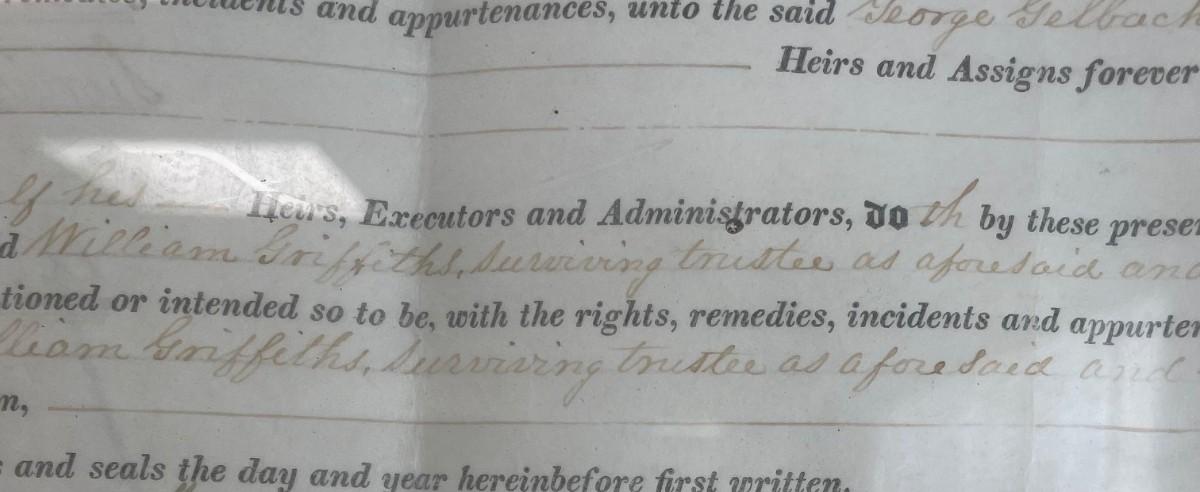 incidents and appurtenances, unto the said George Gelbach
Heirs and Assigns forever
lf his Heirs, Executors and Administrators, do th by these presen
d William Griffiths, surviving trustee as aforesaid and
tioned or intended so to be, with the rights, remedies, incidents and appurten
lliam Griffiths, surviving trustee as aforesaid and
n,
s and seals the day and year hereinbefore first written.